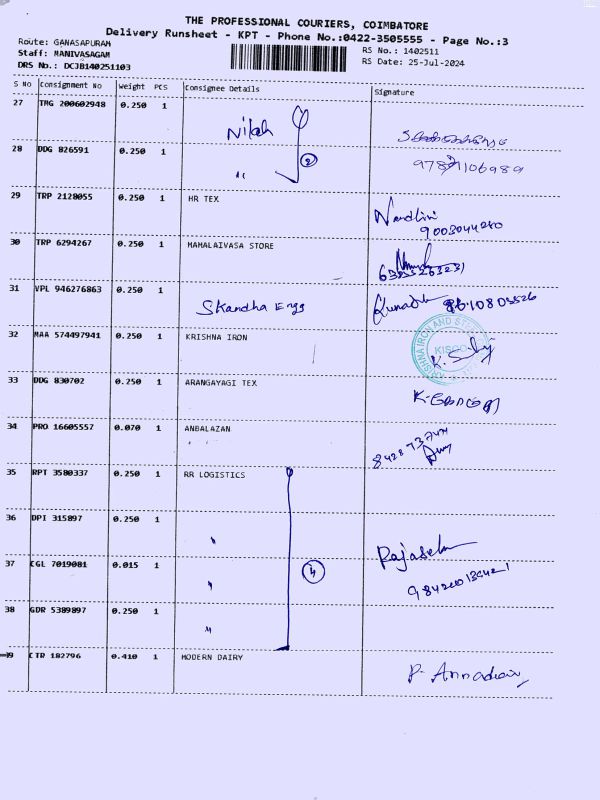 THE PROFESSIONAL COURIERS, COIMBATORE
Delivery Runsheet - KPT - Phone No.:0422-3505555 - Page No.:3
Route: GANASAPURAM
Staff: MANIVASAGAM
DRS No.: DCJB140251103
RS No.: 1402511
RS Date: 25-Jul-2024
S No Consignment No Weight PCS Consignee Details Signature
27 TMG 200602948 0.250 1 Nilah
28 DDG 826591 0.250 1 " 2
29 TRP 2128055 0.250 1 HR TEX Nandhini
9003044280
30 TRP 6294267 0.250 1 MAHALAIVASA STORE
31 VPL 946276863 0.250 1 Skandha Engg
32 MAA 574497941 0.250 1 KRISHNA IRON
KRISHNA IRON AND
KISCO
33 DDG 830702 0.250 1 ARANGAYAGI TEX
34 PRO 16605557 0.070 1 ANBALAZAN
35 RPT 3580337 0.250 1 RR LOGISTICS
36 DPI 315897 0.250 1 "
37 CGL 7019081 0.015 1 " 4
38 GDR 5389897 0.250 1 "
39 CTR 182796 0.410 1 MODERN DAIRY